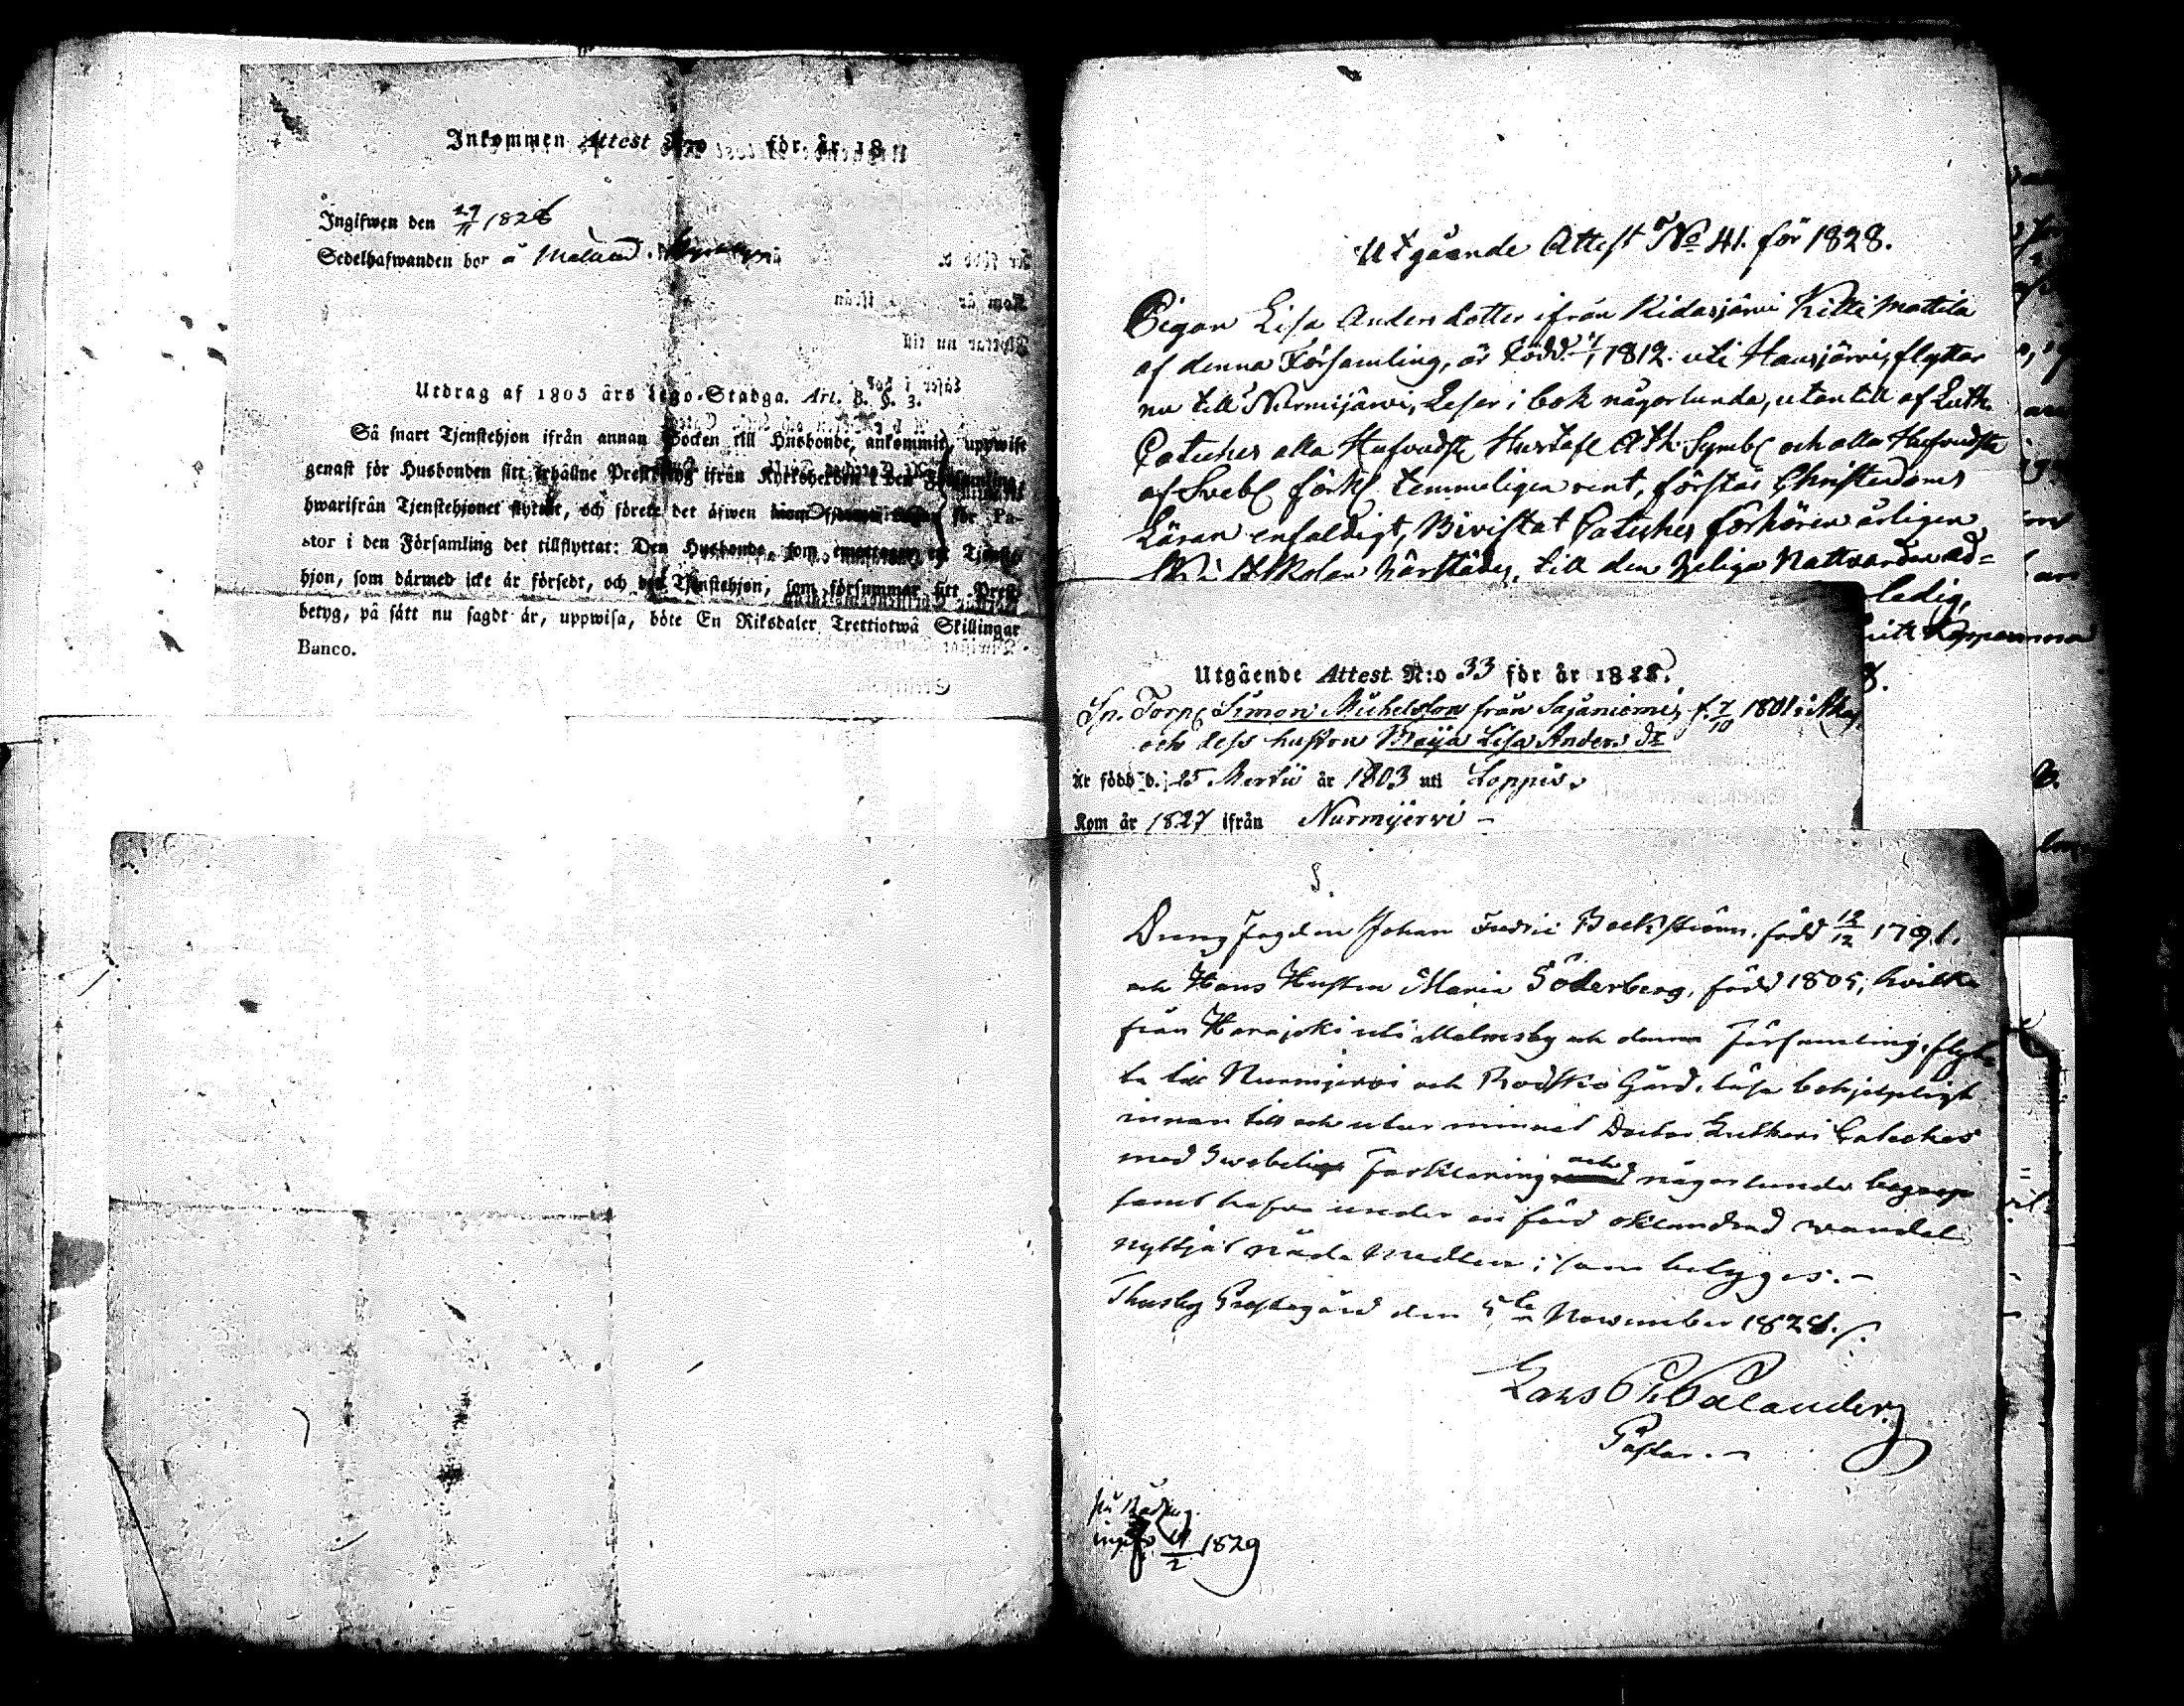 Inkommen Attest N:o för år 18
Ingifwen den 29/11 1828
Sedelhafwanden bor å
Utdrag af 1805 års Lego-Stadga. Art. 8. §. 3.
Så snart Tjenstehjon ifrån annan Socken till Husbonde, ankommit, uppwise
genast för Husbonden sitt erhållne Prestbetyg ifrån Kyrkoherden i den Församling,
hwarifrån Tjenstehjonet flyttat, och förete det äfwen för Pa-
stor i den Församling det tillflyttat: Den Husbonde, som emottager ett Tjenste-
hjon, som därmed icke är försedt, och det Tjenstehjon, som försummar sitt Prest-
betyg, på sätt nu sagdt är, uppwisa, böte En Riksdaler Trettiotwå Skillingar
Banco.
Utgående Attest No 41. för 1828.
Pigan Lisa Anders dotter ifrån Ridasjärvi Kitti Mattila
af denna Församling, är född 1812. uti Hausjärvi, flyttar
nu till Nurmijärvi, Läser i bok någorlunda, utantill af Luth.
Cateches alla Hufvudst. Hustafl. Ath. Symb. och alla Hufvudst.
af Sveb. förkl. temmeligen rent, förstår Christendoms
Läran enfaldigt, Bivistat Catiches förhören årligen
härstädes, till den heliga Nattvarden ad-
ledig,
Utgående Attest N:o 33 för år 1828.
Sp. Torp. Simon Michelsson från Sajaniemi, f. 7/10 1801 i
och dess hustru Maija Lisa Anders dr
Är född d. 25 Martii år 1803 uti Loppis.
Kom år 1827 ifrån Nurmijervi
5.
Dreng Fogden Johan Fredric Backström, född 12/12 1791.
och Hans Hustru Maria Söderberg, född 1805, hvilka
från Harajoki uti Malmsby och denna Församling, flyt-
ta till Nurmijervi och Gård, läsa behjelpligt
innan till och utur minnet Doctor Lutheri Cateches
med Swebelii Förklaring och någorlunda begrep
samt hafva under en förd oklandrad wandel
nyttjat nåda Medlen; som betyges.
Thusby Prestegård den 5te November 1828.
Lars Palander
Pastor.
ingifv. 1829